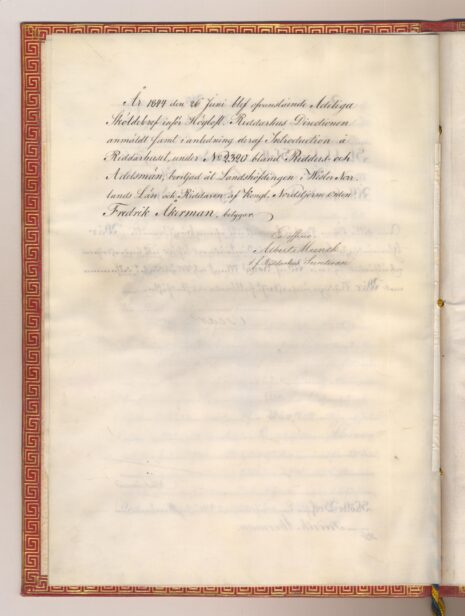 År 1849 den 26 Juni blef ofvanstående Adeliga
Sköldebref inför Höglofl. Riddarhus Directionen
anmäldt samt i anledning deraf Introduction å
Riddarhuset, under No 2320 bland Ridders och
Adelsmän, beviljad åt Landshöfdingen i Wester Norr-
lands Län och Riddaren af Kongl. Nordstjerne Orden
Fredrik Åkerman, betygar.
Ex officio
Albert Munck
t.f. Riddarhus Secreterare